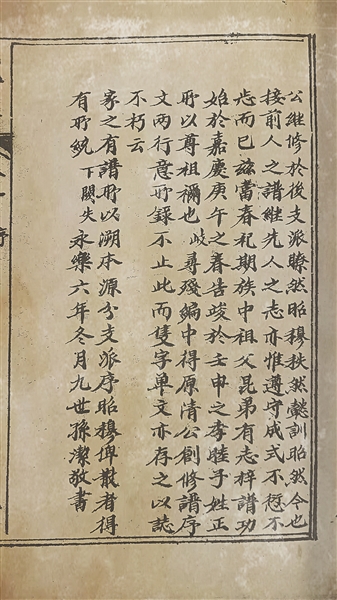 公継修於後支派瞭然昭穆秩然懿訓昭然今也
接前人之譜継先人之志亦惟遵守成式不愆不
忘而已玆當春祀期族中祖父昆弟有志梓譜功
始於嘉慶庚午之春告竣於壬申之季睦子姓正
所以尊祖禰也岐尋殘編中得原清公創修譜序
文两行意所錄不止此而隻字单文亦存之以誌
不朽云
家之有譜所以溯本源分支派序昭穆俾散者得
有所統下闕失永樂六年冬月九世孫潔敬書
序